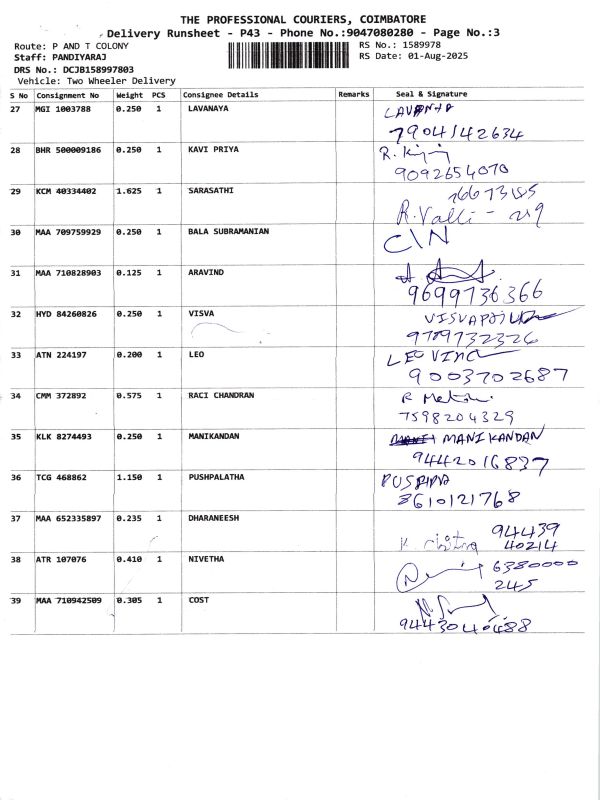 THE PROFESSIONAL COURIERS, COIMBATORE
Delivery Runsheet - P43 - Phone No.:9047080280 - Page No.:3
Route: P AND T COLONY RS No.: 1589978
Staff: PANDIYARAJ RS Date: 01-Aug-2025
DRS No.: DCJB158997803
Vehicle: Two Wheeler Delivery
S No Consignment No Weight PCS Consignee Details Remarks Seal & Signature
27 MGI 1003788 0.250 1 LAVANAYA
7904142634
28 BHR 500009186 0.250 1 KAVI PRIYA
9092654070
29 KCM 40334402 1.625 1 SARASATHI
R.Valli
30 MAA 709759929 0.250 1 BALA SUBRAMANIAN C\N
31 MAA 710828903 0.125 1 ARAVIND
9699736366
32 HYD 84260826 0.250 1 VISVA
9789732326
33 ATN 224197 0.200 1 LEO LEO
9003702687
34 CMM 372892 0.575 1 RACI CHANDRAN
7598204329
35 KLK 8274493 0.250 1 MANIKANDAN MANIKANDAN
9442016837
36 TCG 468862 1.150 1 PUSHPALATHA
8610121768
37 MAA 652335897 0.235 1 DHARANEESH 94439
40214
38 ATR 107076 0.410 1 NIVETHA 6380000
245
39 MAA 710942509 0.305 1 COST
9443040488